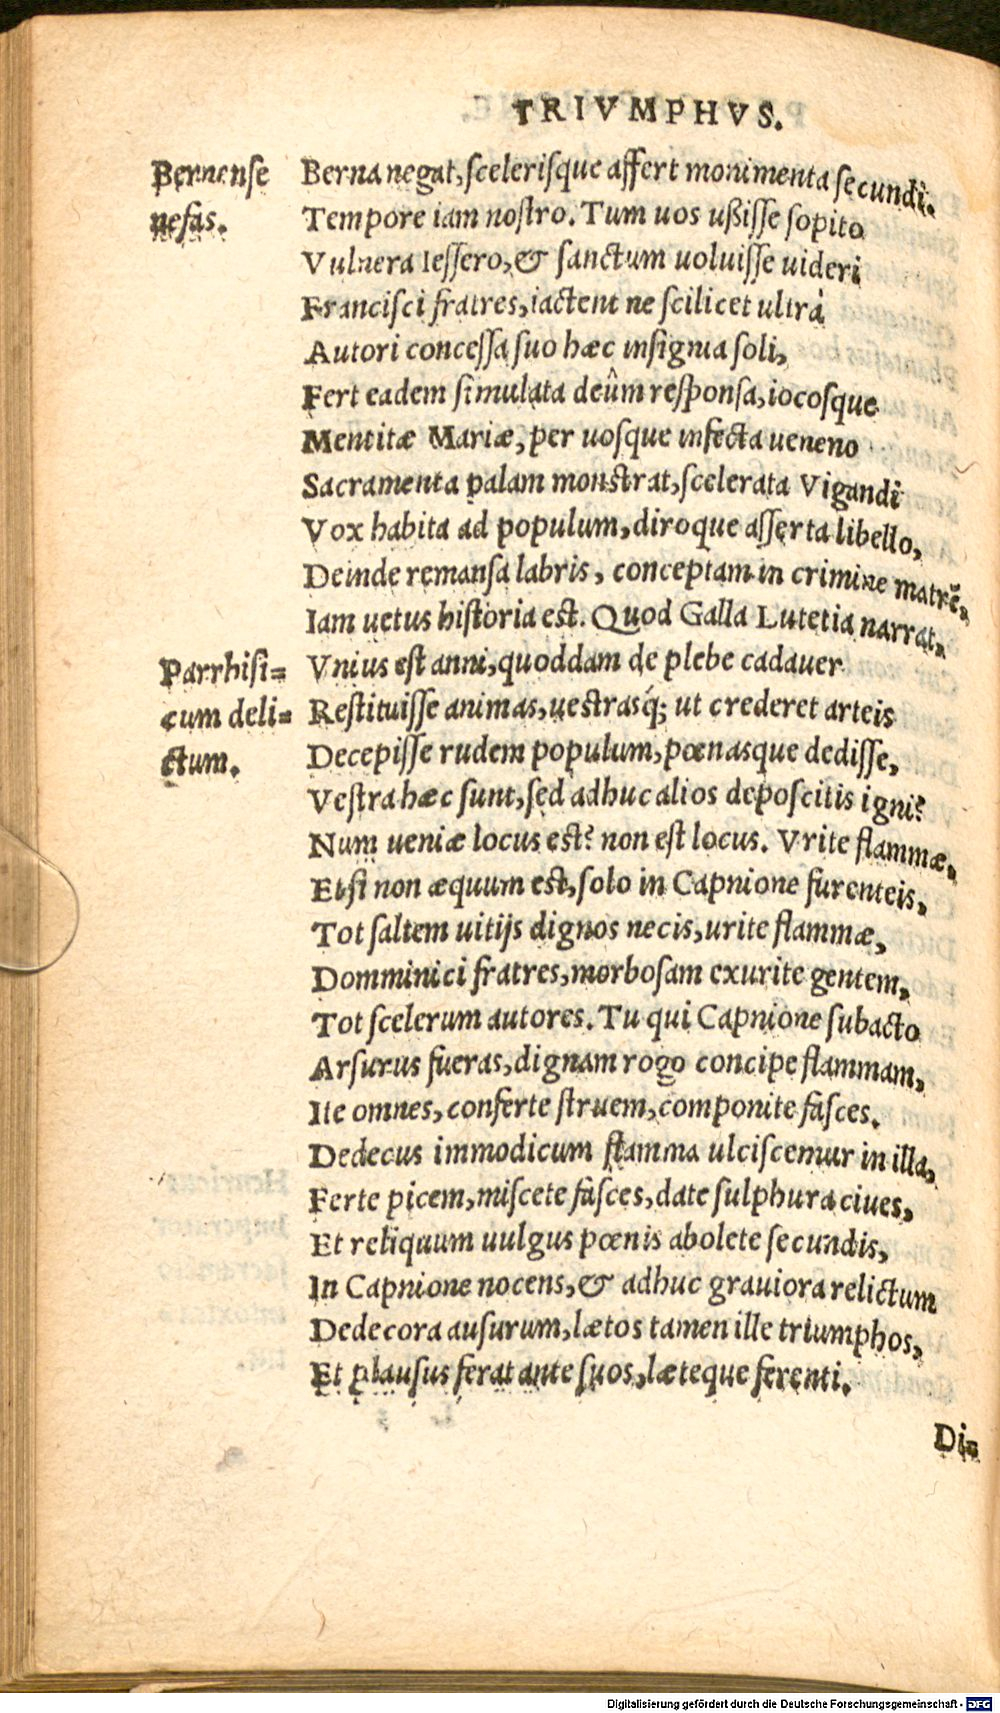 TRIVMPHVS.
Bernense
nefas.
Berna negat, scelerisque affert monimenta secundi.
Tempore iam nostro. Tum uos ußisse sopito
Vulnera Iessero, & sanctum uoluisse uideri
Francisci fratres, iactent ne scilicet ultrà
Autori concessa suo hæc insignia soli,
Fert eadem simulata deûm responsa, iocosque
Mentitæ Mariæ, per uosque infecta ueneno
Sacramenta palam monstrat, scelerata Vigandi
Vox habita ad populum, diroque asserta libello,
Deinde remansa labris, conceptam in crimine matrē,
Iam uetus historia est. Quod Galla Lutetia narrat,
Parrhisi=
cum deli=
ctum.
Vnius est anni, quoddam de plebe cadauer
Restituisse animas, uestrasq́; ut crederet arteis
Decepisse rudem populum, pœnasque dedisse,
Vestra hæc sunt, sed adhuc alios deposcitis igni?
Num ueniæ locus est? non est locus. Vrite flammæ,
Etsi non æquum est, solo in Capnione furenteis,
Tot saltem uitijs dignos necis, urite flammæ,
Domminici fratres, morbosam exurite gentem,
Tot scelerum autores. Tu qui Capnione subacto
Arsurus fueras, dignam rogo concipe flammam,
Ite omnes, conferte struem, componite fasces.
Dedecus immodicum flamma ulciscemur in illa,
Ferte picem, miscete fasces, date sulphura ciues,
Et reliquum uulgus pœnis abolete secundis,
In Capnione nocens, & adhuc grauiora relictum
Dedecora ausurum, lætos tamen ille triumphos,
Et plausus ferat ante suos, læteque ferenti.
Di=
Digitalisierung gefördert durch die Deutsche Forschungsgemeinschaft - DFG